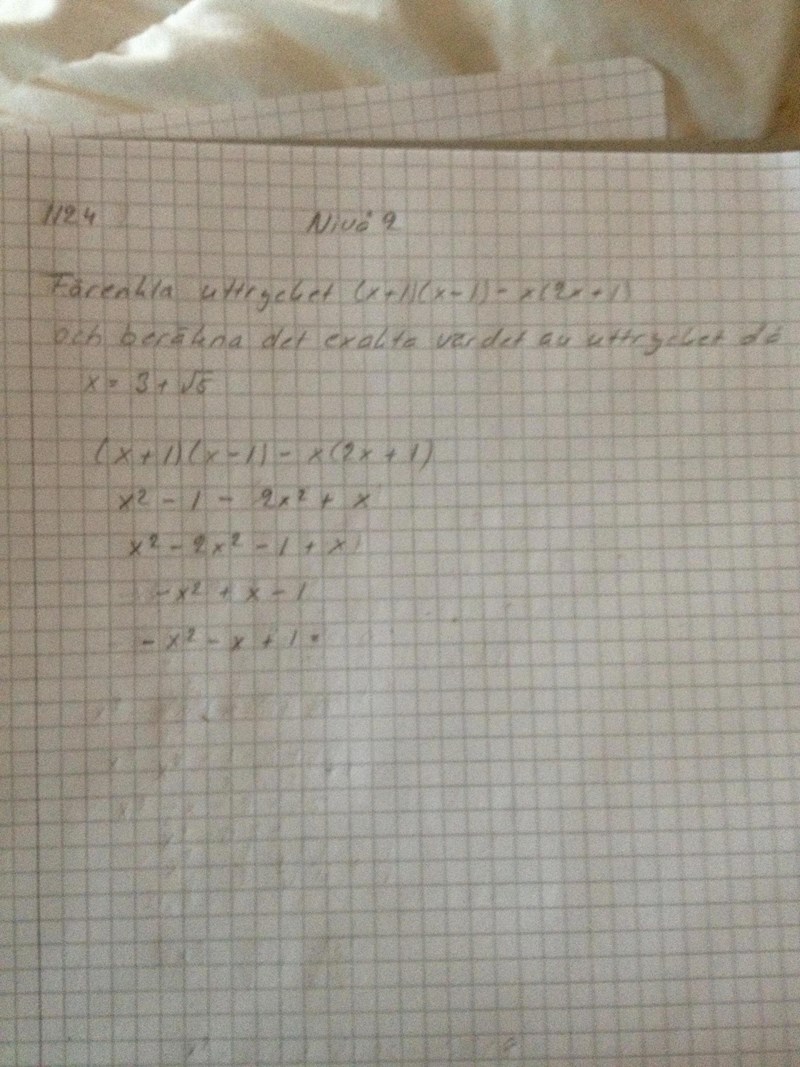 1124 Nivå 2
Förenkla uttrycket (x+1)(x-1) - x(2x+1)
och beräkna det exakta värdet av uttrycket då
x = 3 + √5
(x+1)(x-1) - x(2x+1)
x² - 1 - 2x² + x
x² - 2x² - 1 + x
-x² + x - 1
-x² - x + 1 =